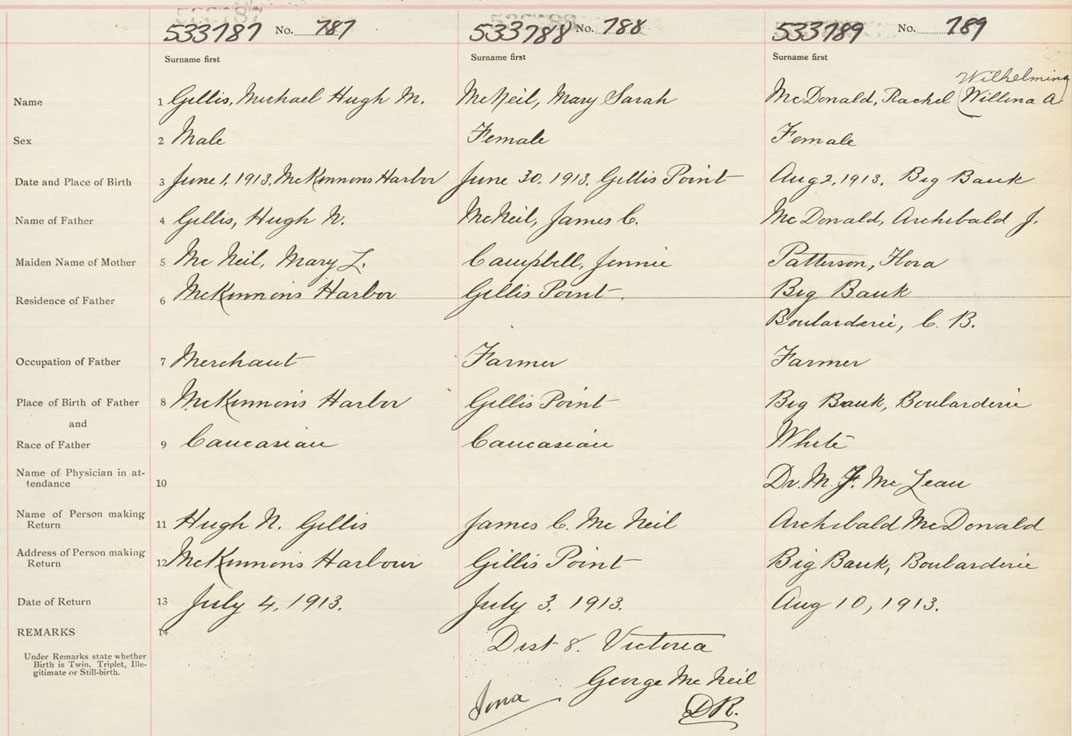 533787 No. 787 533788 No. 788 533789 No. 789
Surname first Surname first Surname first
Wilhelmina
Name 1 Gillis, Michael Hugh M. McNeil, Mary Sarah McDonald, Rachel (Willena A)
Sex 2 Male Female Female
Date and Place of Birth 3 June 1, 1913, McKinnons Harbor June 30. 1913. Gillis Point Aug 2, 1913. Big Bank
Name of Father 4 Gillis, Hugh N. McNeil, James C. McDonald, Archibald J.
Maiden Name of Mother 5 McNeil, Mary L. Campbell, Jennie Patterson, Flora
Residence of Father 6 McKinnons Harbor Gillis Point. Big Bank
Boularderie, C. B.
Occupation of Father 7 Merchant Farmer Farmer
Place of Birth of Father 8 McKinnons Harbor Gillis Point Big Bank, Boularderie
and
Race of Father 9 Caucasian Caucasian White
Name of Physician in at-
tendance 10 Dr. M. J. McLean
Name of Person making
Return 11 Hugh N. Gillis James C. McNeil Archibald McDonald
Address of Person making
Return 12 McKinnons Harbour Gillis Point Big Bank, Boularderie
Date of Return 13 July 4, 1913. July 3. 1913. Aug 10, 1913.
REMARKS 14
Dist 8. Victoria
Under Remarks state whether
Birth is Twin, Triplet, Ille-
gitimate or Still-birth.
George McNeil
Iona D.R.